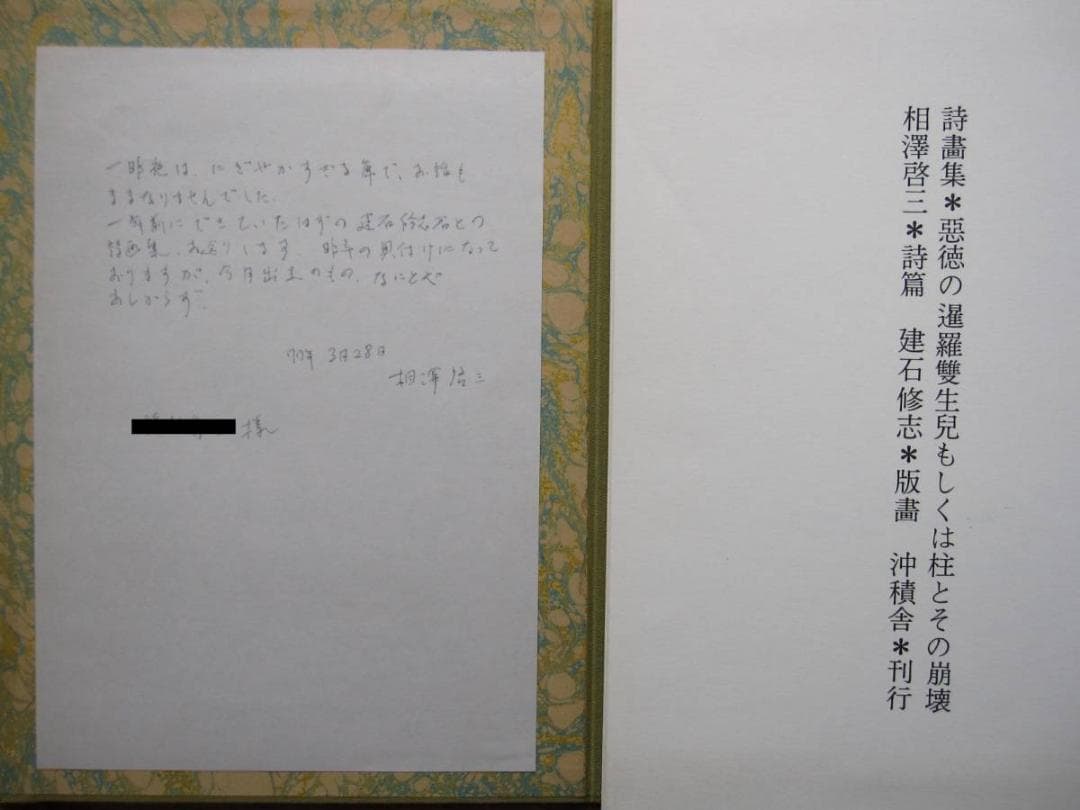 一昨夜は、にぎやかすぎる席で、お話も
ままなりませんでした。
一年前にできていたはずの建石修志君との
詩画集、お送りします 昨年の奥付けになって
おりますが、今月出来のもの、なにとぞ
あしからず。
3月28日
相澤啓三
様
詩畫集＊惡徳の暹羅雙生兒もしくは柱とその崩壊
相澤啓三＊詩篇 建石修志＊版畫 沖積舎＊刊行